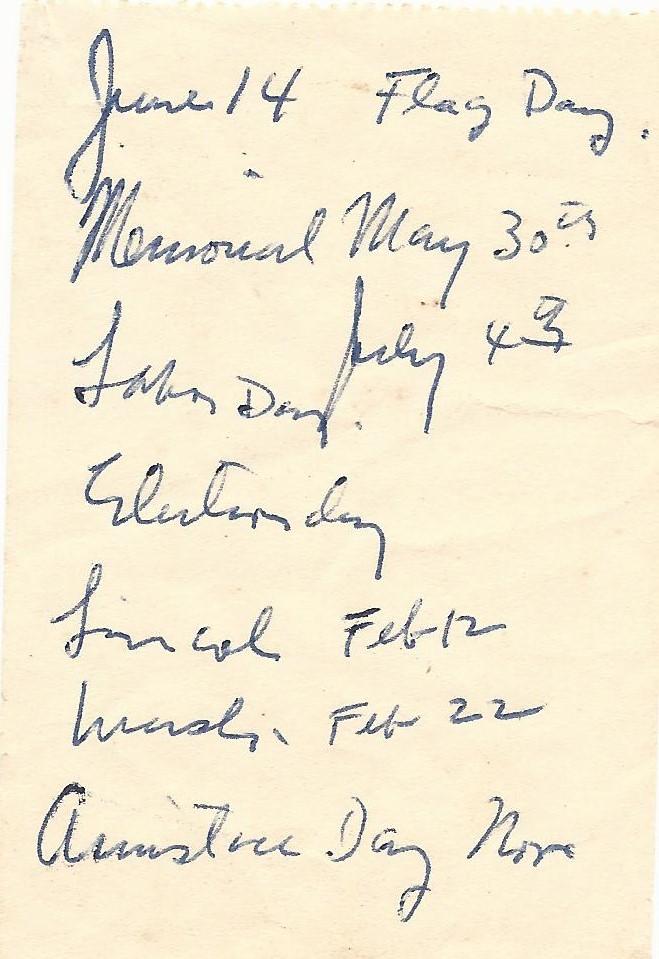 June 14 Flag Day.
Memorial May 30th
July 4th
Labor Day.
Election day
Lincoln Feb 12
Wash. Feb 22
Armistice Day Nov